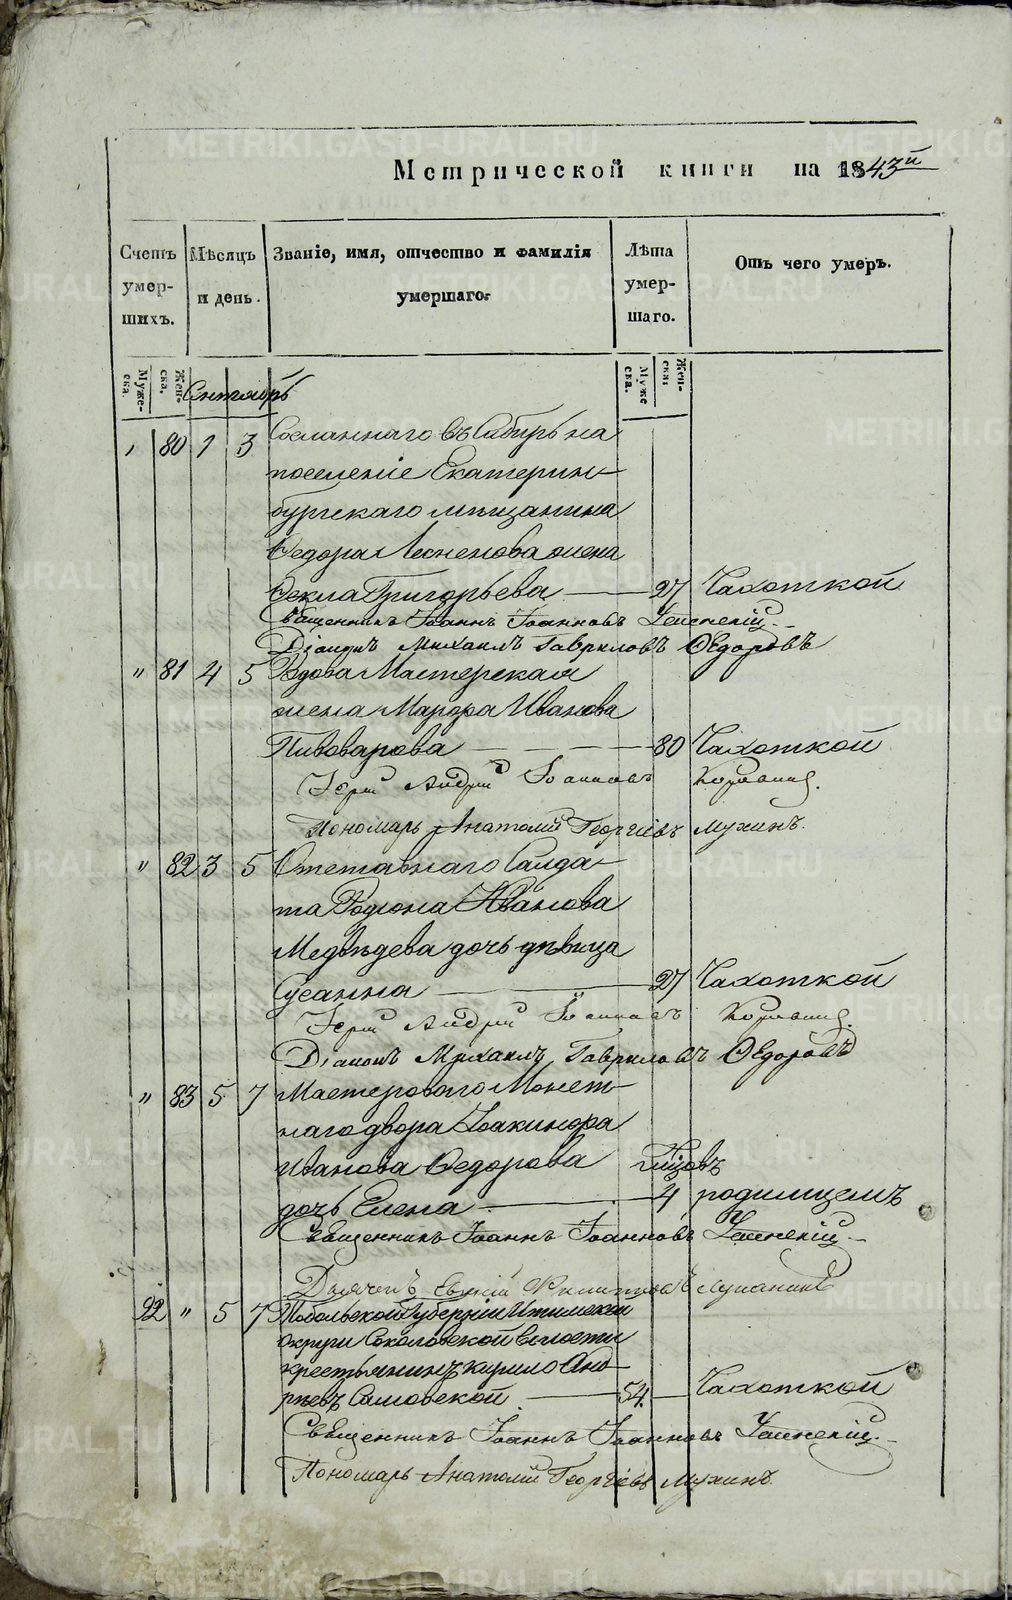 Метрической книги на 1843й
Счетъ умер- шихъ.
Мѣсяцъ и день.
Званіе, имя, отчество и фамилія умершаго.
Лѣта умер- шаго.
Отъ чего умеръ.
Муже- ска.
Жен- ска.
Муже ска.
Жен- ска:
Сентябрь
80 1 3 Сосланнаго въ Сибирь на
поселеніе Екатерин-
бургскаго мѣщанина
Ѳедора жена
Ѳекла Григорьева — 27 Чахоткой
Священникъ Іоаннъ Іоанновъ
Діаконъ Михаилъ Гавриловъ Ѳедоровъ
" 81 4 5 Вдова Мастерская
жена Марѳа Иванова
Пивоварова — 80 Чахоткой
Іерей Андрей Іоанновъ
Пономарь Анатолій Георгіевъ Мухинъ.
" 82 3 5 Отставнаго Салда-
та Родіона Иванова
Медвѣдева дочь дѣвица
Сусанна — 27 Чахоткой
Іерей Андрей Іоанновъ
Діаконъ Михаилъ Гавриловъ Ѳедоровъ
" 83 5 7 Мастероваго Монет-
наго двора Іоакинѳа
Иванова Ѳедорова
дочь Елена — 4 родимцемъ
Священникъ Іоаннъ Іоанновъ
Дьячекъ
92 " 5 7 Тобольской Губерніи Ишимской
округи Соколовской волости
крестьянинъ Кирило Анд-
рѣевъ — 54. — Чахоткой
Священникъ Іоаннъ Іоанновъ
Пономарь Анатолій Георгіевъ Мухинъ.
METRIKI.GASO-URAL.RU